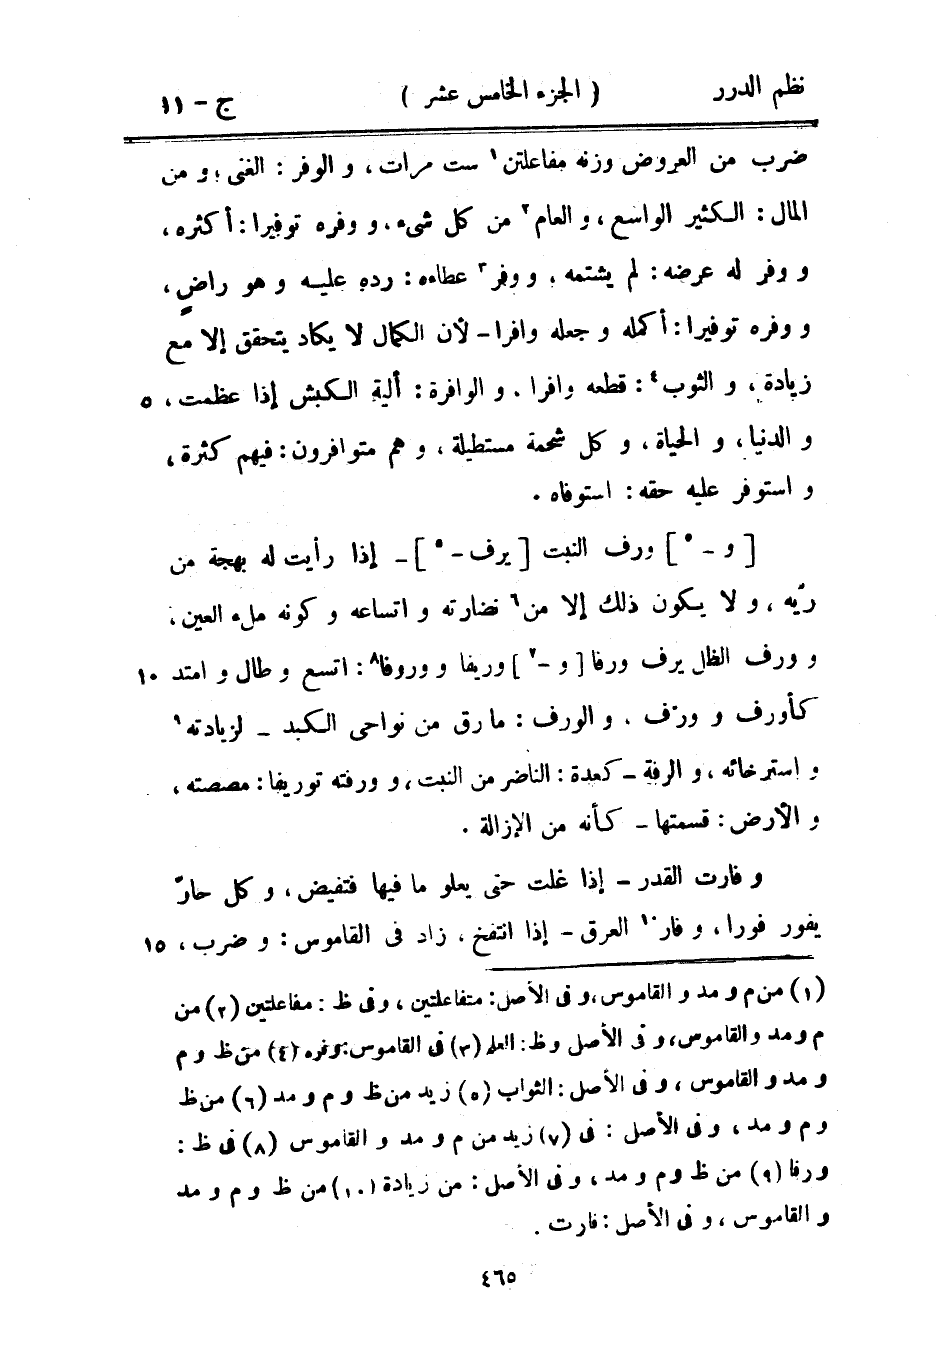 نظم الدرر ( الجزء الخامس عشر ) ج - ١١
ضرب من العروض وزنه مفاعلتن١ ست مرات ، و الوفر : الغنى ؛ و من
المال : الكثير الواسع ، و العام٢ من كل شىء . و وفره توفيرا : أكثره ،
و وفر له عرضه : لم يشتمه . و وفر٣ عطاءه : رده عليه و هو راضٍ ،
و وفره توفيرا : أكمله و جعله وافرا - لأن الكمال لا يكاد يتحقق إلا مع
زيادة ، و الثوب٤ : قطعه وافرا . و الوافرة : ألية الكبش إذا عظمت ، ٥
و الدنيا ، و الحياة ، و كل شحمة مستطيلة ، و هم متوافرون : فيهم كثرة ،
و استوفر عليه حقه : استوفاه .
[ و - ٥ ] ورف النبت [ يرف - ٥ ] - إذا رأيت له بهجة من
ريّه ، و لا يكون ذلك إلا من٦ نضارته و اتساعه و كونه ملء العين ،
و ورف الظل يرف ورفا [ و - ٧ ] وريفا و وروفا٨ : اتسع و طال و امتد ١٠
كأورف و ورّف . و الورف : ما رق من نواحى الكبد - لزيادته٩
و استرخائه ، و الرفة - كعدة : الناضر من النبت ، و ورفته توريفا : مصصته ،
و الأرض : قسمتها - كأنه من الإزالة .
و فارت القدر - إذا غلت حتى يعلو ما فيها فتفيض ، و كل حارّ
يفور فورا ، و فار١٠ العرق - إذا انتفخ ، زاد فى القاموس : و ضرب ، ١٥
(١) من م و مد و القاموس ، و فى الأصل : متفاعلتين ، و فى ظ : مفاعلتين (٢) من
م و مد و القاموس ، و فى الأصل و ظ : العلم (٣) فى القاموس : وفره (٤) من ظ و م
و مد و القاموس ، و فى الأصل : الثواب (٥) زيد من ظ و م و مد (٦) من ظ
و م و مد ، و فى الأصل : فى (٧) زيد من م و مد و القاموس (٨) فى ظ :
ورفا (٩) من ظ و م و مد ، و فى الأصل : من زيادة (١٠) من ظ و م و مد
و القاموس ، و فى الأصل : فارت .
٤٦٥